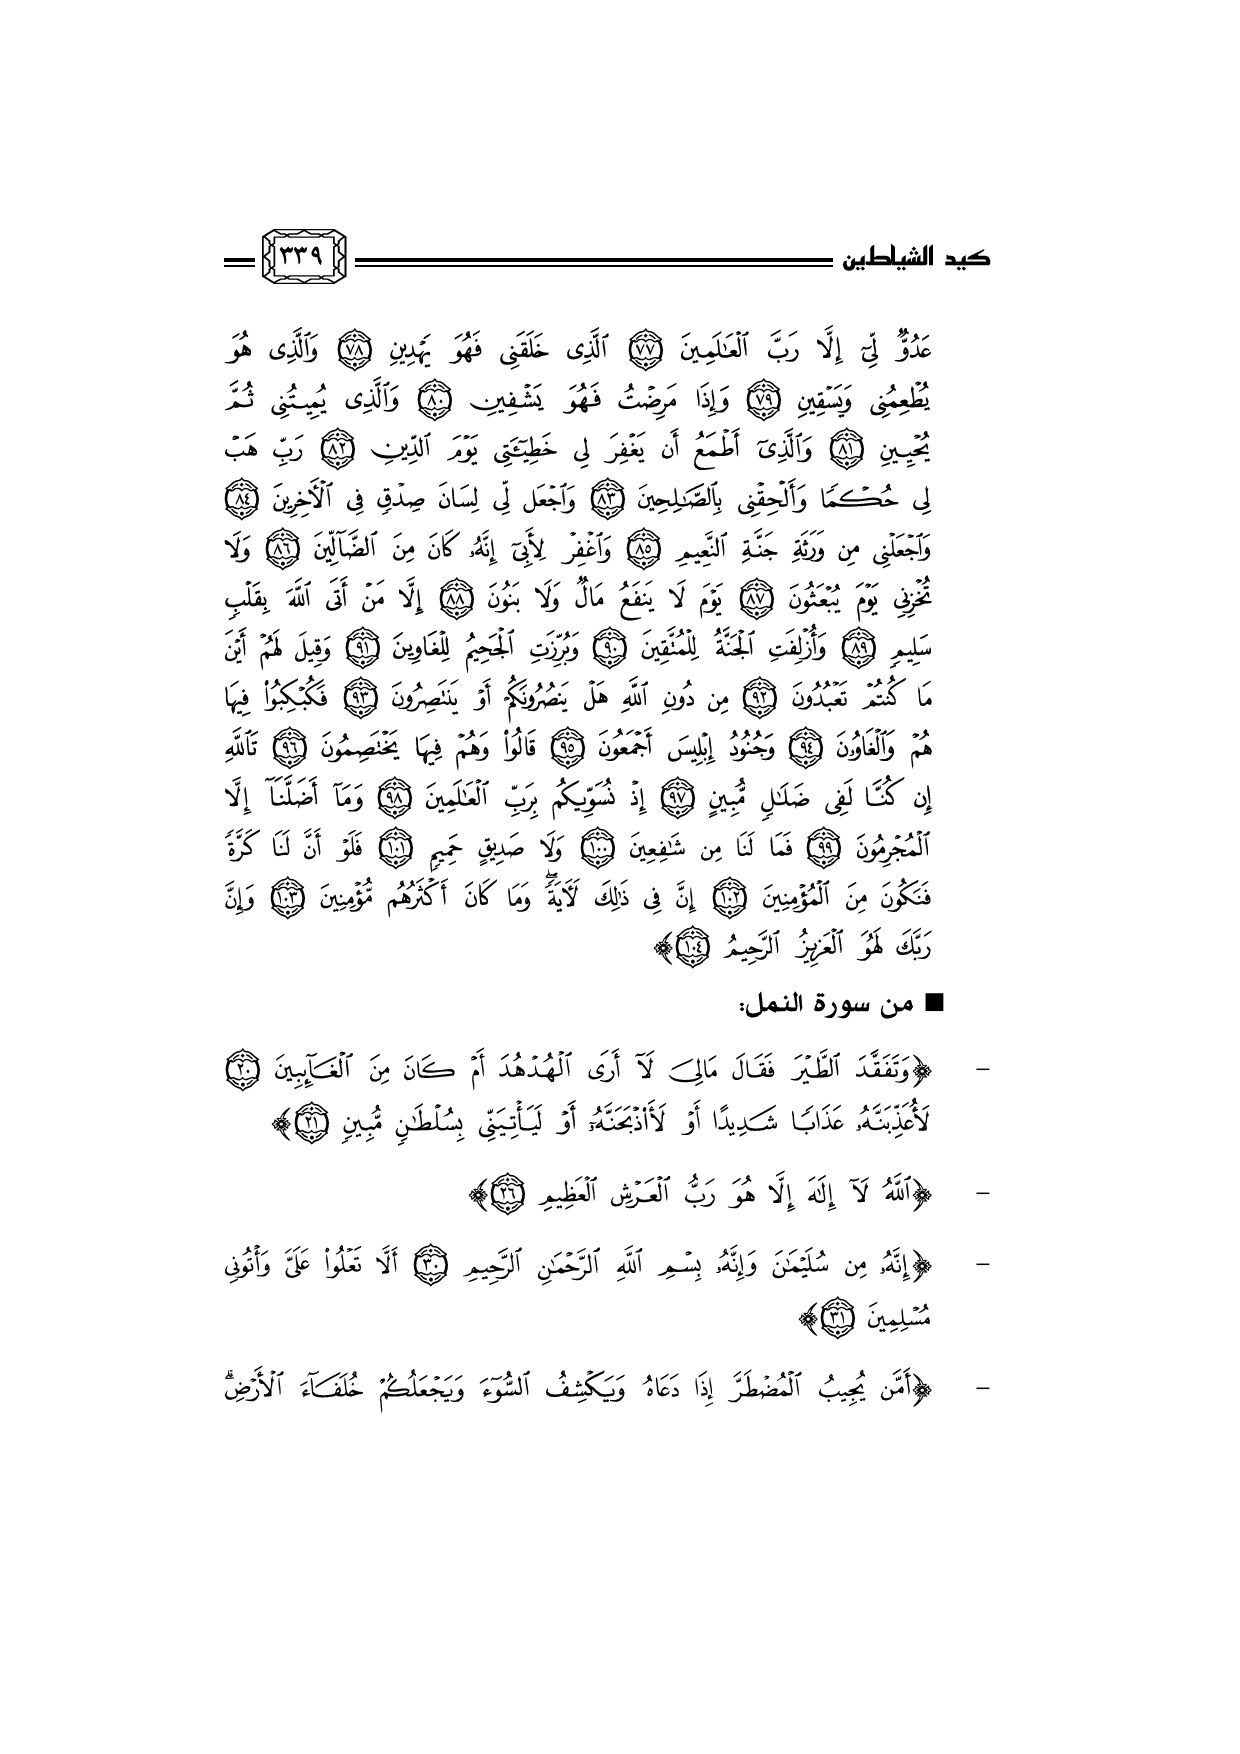 كيد الشياطين ٣٣٩
عَدُوٌّ لِّيٓ إِلَّا رَبَّ ٱلۡعَٰلَمِينَ ٧٧ ٱلَّذِي خَلَقَنِي فَهُوَ يَهۡدِينِ ٧٨ وَٱلَّذِي هُوَ
يُطۡعِمُنِي وَيَسۡقِينِ ٧٩ وَإِذَا مَرِضۡتُ فَهُوَ يَشۡفِينِ ٨٠ وَٱلَّذِي يُمِيتُنِي ثُمَّ
يُحۡيِينِ ٨١ وَٱلَّذِيٓ أَطۡمَعُ أَن يَغۡفِرَ لِي خَطِيٓـَٔتِي يَوۡمَ ٱلدِّينِ ٨٢ رَبِّ هَبۡ
لِي حُكۡمٗا وَأَلۡحِقۡنِي بِٱلصَّٰلِحِينَ ٨٣ وَٱجۡعَل لِّي لِسَانَ صِدۡقٖ فِي ٱلۡأٓخِرِينَ ٨٤
وَٱجۡعَلۡنِي مِن وَرَثَةِ جَنَّةِ ٱلنَّعِيمِ ٨٥ وَٱغۡفِرۡ لِأَبِيٓ إِنَّهُۥ كَانَ مِنَ ٱلضَّآلِّينَ ٨٦ وَلَا
تُخۡزِنِي يَوۡمَ يُبۡعَثُونَ ٨٧ يَوۡمَ لَا يَنفَعُ مَالٞ وَلَا بَنُونَ ٨٨ إِلَّا مَنۡ أَتَى ٱللَّهَ بِقَلۡبٖ
سَلِيمٖ ٨٩ وَأُزۡلِفَتِ ٱلۡجَنَّةُ لِلۡمُتَّقِينَ ٩٠ وَبُرِّزَتِ ٱلۡجَحِيمُ لِلۡغَاوِينَ ٩١ وَقِيلَ لَهُمۡ أَيۡنَ
مَا كُنتُمۡ تَعۡبُدُونَ ٩٢ مِن دُونِ ٱللَّهِ هَلۡ يَنصُرُونَكُمۡ أَوۡ يَنتَصِرُونَ ٩٣ فَكُبۡكِبُواْ فِيهَا
هُمۡ وَٱلۡغَاوُۥنَ ٩٤ وَجُنُودُ إِبۡلِيسَ أَجۡمَعُونَ ٩٥ قَالُواْ وَهُمۡ فِيهَا يَخۡتَصِمُونَ ٩٦ تَٱللَّهِ
إِن كُنَّا لَفِي ضَلَٰلٖ مُّبِينٍ ٩٧ إِذۡ نُسَوِّيكُم بِرَبِّ ٱلۡعَٰلَمِينَ ٩٨ وَمَآ أَضَلَّنَآ إِلَّا
ٱلۡمُجۡرِمُونَ ٩٩ فَمَا لَنَا مِن شَٰفِعِينَ ١٠٠ وَلَا صَدِيقٍ حَمِيمٖ ١٠١ فَلَوۡ أَنَّ لَنَا كَرَّةٗ
فَنَكُونَ مِنَ ٱلۡمُؤۡمِنِينَ ١٠٢ إِنَّ فِي ذَٰلِكَ لَأٓيَةٗۖ وَمَا كَانَ أَكۡثَرُهُم مُّؤۡمِنِينَ ١٠٣ وَإِنَّ
رَبَّكَ لَهُوَ ٱلۡعَزِيزُ ٱلرَّحِيمُ ١٠٤﴾
■ من سورة النمل:
- ﴿وَتَفَقَّدَ ٱلطَّيۡرَ فَقَالَ مَالِيَ لَآ أَرَى ٱلۡهُدۡهُدَ أَمۡ كَانَ مِنَ ٱلۡغَآئِبِينَ ٢٠
لَأُعَذِّبَنَّهُۥ عَذَابٗا شَدِيدًا أَوۡ لَأَاْذۡبَحَنَّهُۥٓ أَوۡ لَيَأۡتِيَنِّي بِسُلۡطَٰنٖ مُّبِينٖ ٢١﴾
- ﴿ٱللَّهُ لَآ إِلَٰهَ إِلَّا هُوَ رَبُّ ٱلۡعَرۡشِ ٱلۡعَظِيمِ ٢٦﴾
- ﴿إِنَّهُۥ مِن سُلَيۡمَٰنَ وَإِنَّهُۥ بِسۡمِ ٱللَّهِ ٱلرَّحۡمَٰنِ ٱلرَّحِيمِ ٣٠ أَلَّا تَعۡلُواْ عَلَيَّ وَأۡتُونِي
مُسۡلِمِينَ ٣١﴾
- ﴿أَمَّن يُجِيبُ ٱلۡمُضۡطَرَّ إِذَا دَعَاهُ وَيَكۡشِفُ ٱلسُّوٓءَ وَيَجۡعَلُكُمۡ خُلَفَآءَ ٱلۡأَرۡضِۗ